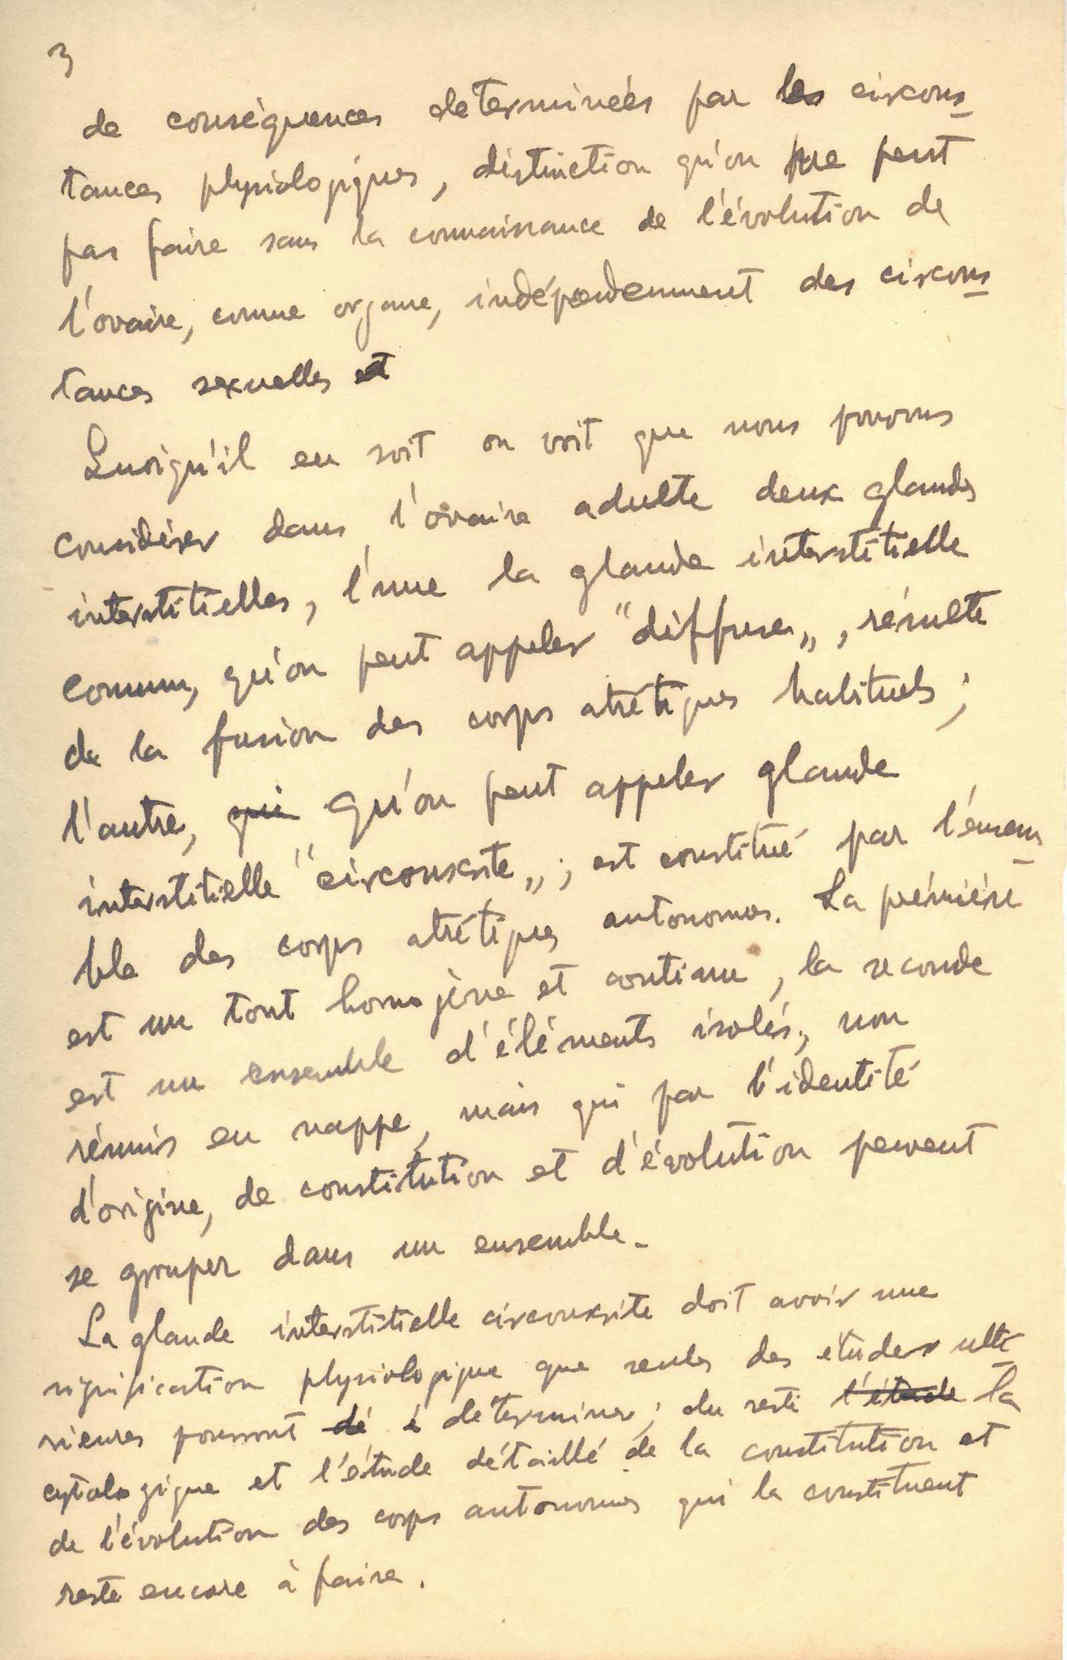 3
de conséquences determinées par les circons
tances physiologiques, distinction qu'on ne peut
pas faire sans la connaissance de l'évolution de
l'ovaire, comme organe, indépendemment des circons
tances sexuelles et
Quoiqu'il en soit on voit que nous pouvons
considérer dans l'ovaire adulte deux glandes
interstitielles, l'une la glande interstitielle
commun, qu'on peut appeler "diffuse„, résulte
de la fusion des corps atrétiques habituels;
l'autre, qui qu'on peut appeler glande
interstitielle "circonscrite„; est constitué par l'ensem
ble des corps atrétiques autonomes. La première
est un tout homogène et continu, la seconde
est un ensemble d'éléments isolés, non
réunis en nappe, mais qui par l'identité
d'origine, de constitution et d'évolution peuvent
se grouper dans un ensemble.
La glande interstitielle circonscrite doit avoir une
signification physiologique que seules des études ulté
rieures pourront dé é determiner; du reste l'étude la
cytologique et l'étude détaillé de la constitution et
de l'évolution des corps autonomes qui la constituent
reste encore à faire.